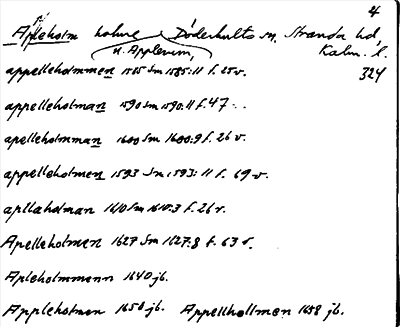 4
Apleholm holme Döderhults sn, Stranda hd,
u. Applerum, Kalm. l.
appelleholmmen 1585 Sm 1585:11 f. 25 v. 324
appelleholman 1590 Sm 1590:11 f. 47
apelleholmman 1600 Sm 1600:9 f. 26 v.
appelleholmen 1593 Sm 1593:11 f. 69 v.
apllaholman 1610 Sm 1610:3 f. 26 v.
Apelleholmen 1627 Sm 1627:8 f. 63 v.
Apleholmmann 1640 jb.
Appleholmen 1650 jb. Appelhollmen 1658 jb.